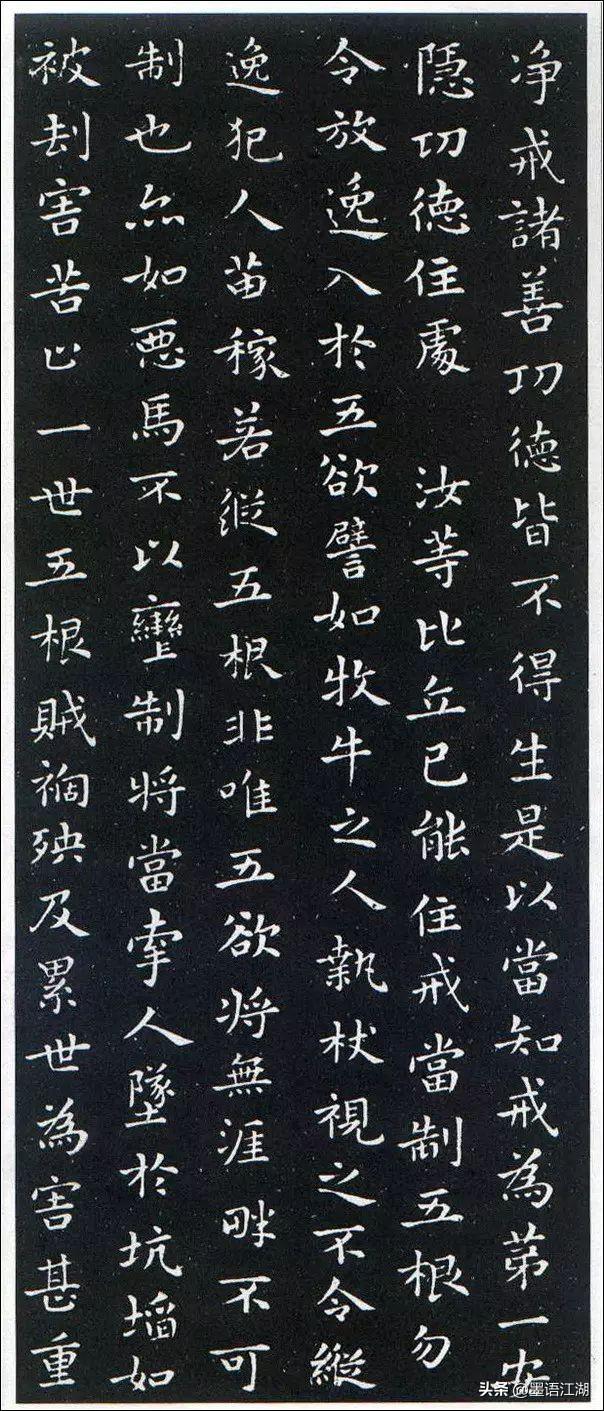 净戒諸善功德皆不得生是以當知戒為第一安
隱功德住處　汝等比丘已能住戒當制五根勿
令放逸入於五欲譬如牧牛之人執杖視之不令縱
逸犯人苗稼若縱五根非唯五欲將無涯畔不可
制也亦如惡馬不以轡制將當牽人墜於坑埳如
被劫害苦止一世五根賊禍殃及累世為害甚重
头条 @墨语江湖